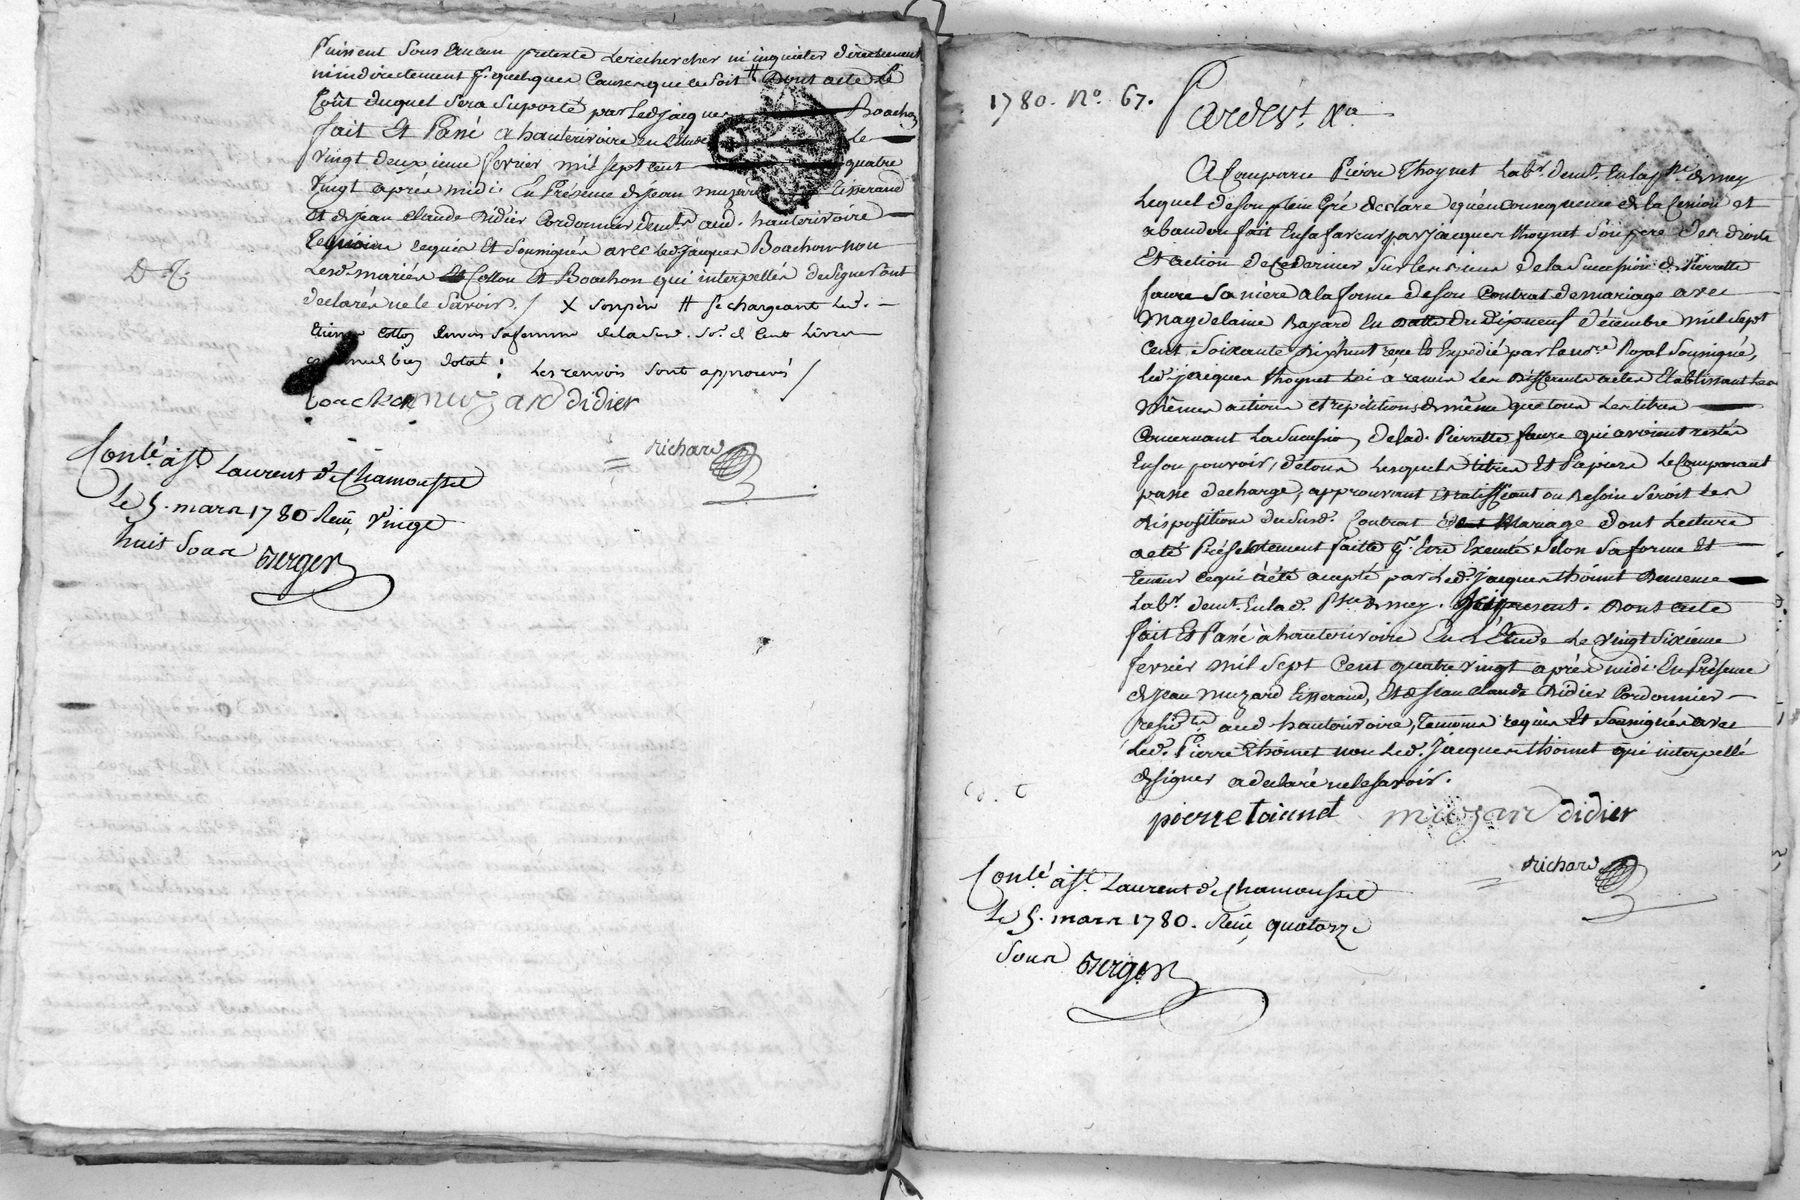 puissent sous aucun pretexte Le rechercher ni inquieter directement
ni indirectement pr. quelques Causes que ce soit # Dont acte Le
Coût duquel sera suporté par Led. jacques Boachon
fait Et Passé a hauterivoire En L'étude Le
vingt deuxieme fevrier mil sept cent quatre
vingt après midi En Présence de jean muzard tisserand
Et de jean claude Didier Cordonnier demts. aud. hauterivoire
requis Et Soussignés avec Led. jacques Boachon non
Lesd. mariés Collon Et Boachon qui interpellés de signer ont
declarés ne le Savoir. / X Son père # Se chargeant Led.
Etienne Collon envers sa femme de lad. Cent Livres
dotal : Les renvois sont approuvés /
D. T.
boachon muzard didier
richard
Conlé. à St. Laurent de Chamousset
Le 5. mars 1780 Reçu vingt
huit sous
Berger
1780. No. 67.
Pardevt. Na.
A Comparu Pierre Thoynet Labr. demt. En la psse. de mey
Lequel de son plein Gré declare qu'en Consequence de la Cession et
abandon fait En sa faveur par jacques thoynet son pere des droits
Et action de ce dernier sur les siens de la Succession de Pierrette
faure sa mère a la forme de son Contrat de mariage avec
Magdelaine Bazard En datte du dixneuf décembre mil sept
cent soixante dixhuit reçu Et Expedié par le nore. Royal Soussigné,
led. jacques thoynet Lui a remis Les differents actes Etablissant Les
mêmes actions et repetitions de même que tous Les titres
Concernant La Succession de lad. Pierrette faure qui avoient restés
En son pouvoir, de tous Lesquels titres Et Papiers Le Comparant
passe decharge, approuvant Et ratiffiant ou Besoin seroit Les
dispositions du susd. Contrat de Mariage dont Lecture
a eté Présentement faitte pr. Etre Executé selon sa forme Et
teneur ce qui à été accepté par Led. jacques thoinet
Labr. demt. En lad. Psse. de mey. ici present. Dont acte
fait Et Passé à hauterivoire En L'Etude Le vingt Sixième
fevrier mil sept Cent quatre vingt après midi En Présence
de jean muzard tisserand, Et de jean claude Didier Cordonnier
residts. aud. hauterivoire, temoins requis Et Soussignés avec
Led. Pierre thoinet non Led. jacques thoinet qui interpellé
de signer a declaré ne le savoir.
pierre toiand muzard didier
richard
Conlé. à St. Laurent de Chamousset
Le 5. mars 1780. Reçu quatorze
sous
Berger